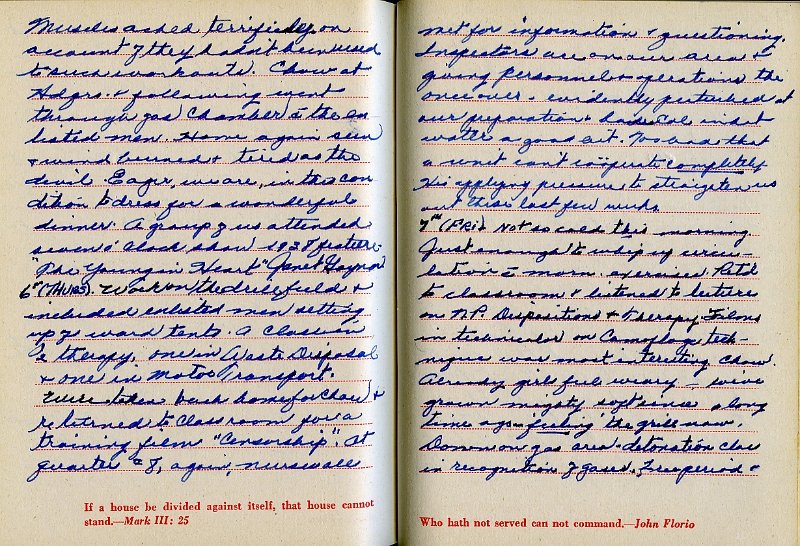 Muscles ached terrifically on
account of they hadn't been used
to such workouts. Chow at
Hdqrs. & following went
through gas chamber c̄ the en
listed men. Home again sun
& wind burned & tired as the
devil. Eager, we are, in this con
dition to dress for a wonderful
dinner. A group of us attended
seven o'clock show 1938 feature
"The Young in Heart" Janet Gaynor
6th (Thurs). Work on the drill field &
included enlisted men setting
up of ward tents. A class in
therapy, one in Waste Disposal
& one in Motor Transport.
taken back home for chow &
returned to classroom for a
training film "Censorship". At
quarter of 8, again, nurses all
If a house be divided against itself, that house cannot
stand.—Mark III: 25
met for information & questioning.
Inspectors are on our area &
giving personnel & operations the
once over - evidently perturbed at
our preparation &
water a good bit. Too bad that
a unit can't cooperate completely
His applying pressure to straighten us
out these last few weeks
7th (Fri). Not so cold this morning
Just enough to whip up circu-
lation c̄ morn. exercises. Rith
to classroom & listened to lecture
on N.P. Dispositions & therapy. Films
in technicolor on Camoflage tech-
nique was most interesting. Chow.
Already girls feel weary - we've
grown mighty soft since along
time ago - feeling the grill now.
Down on gas area - detonation class
in recognition of gases. Free period &
Who hath not served can not command.—John Florio